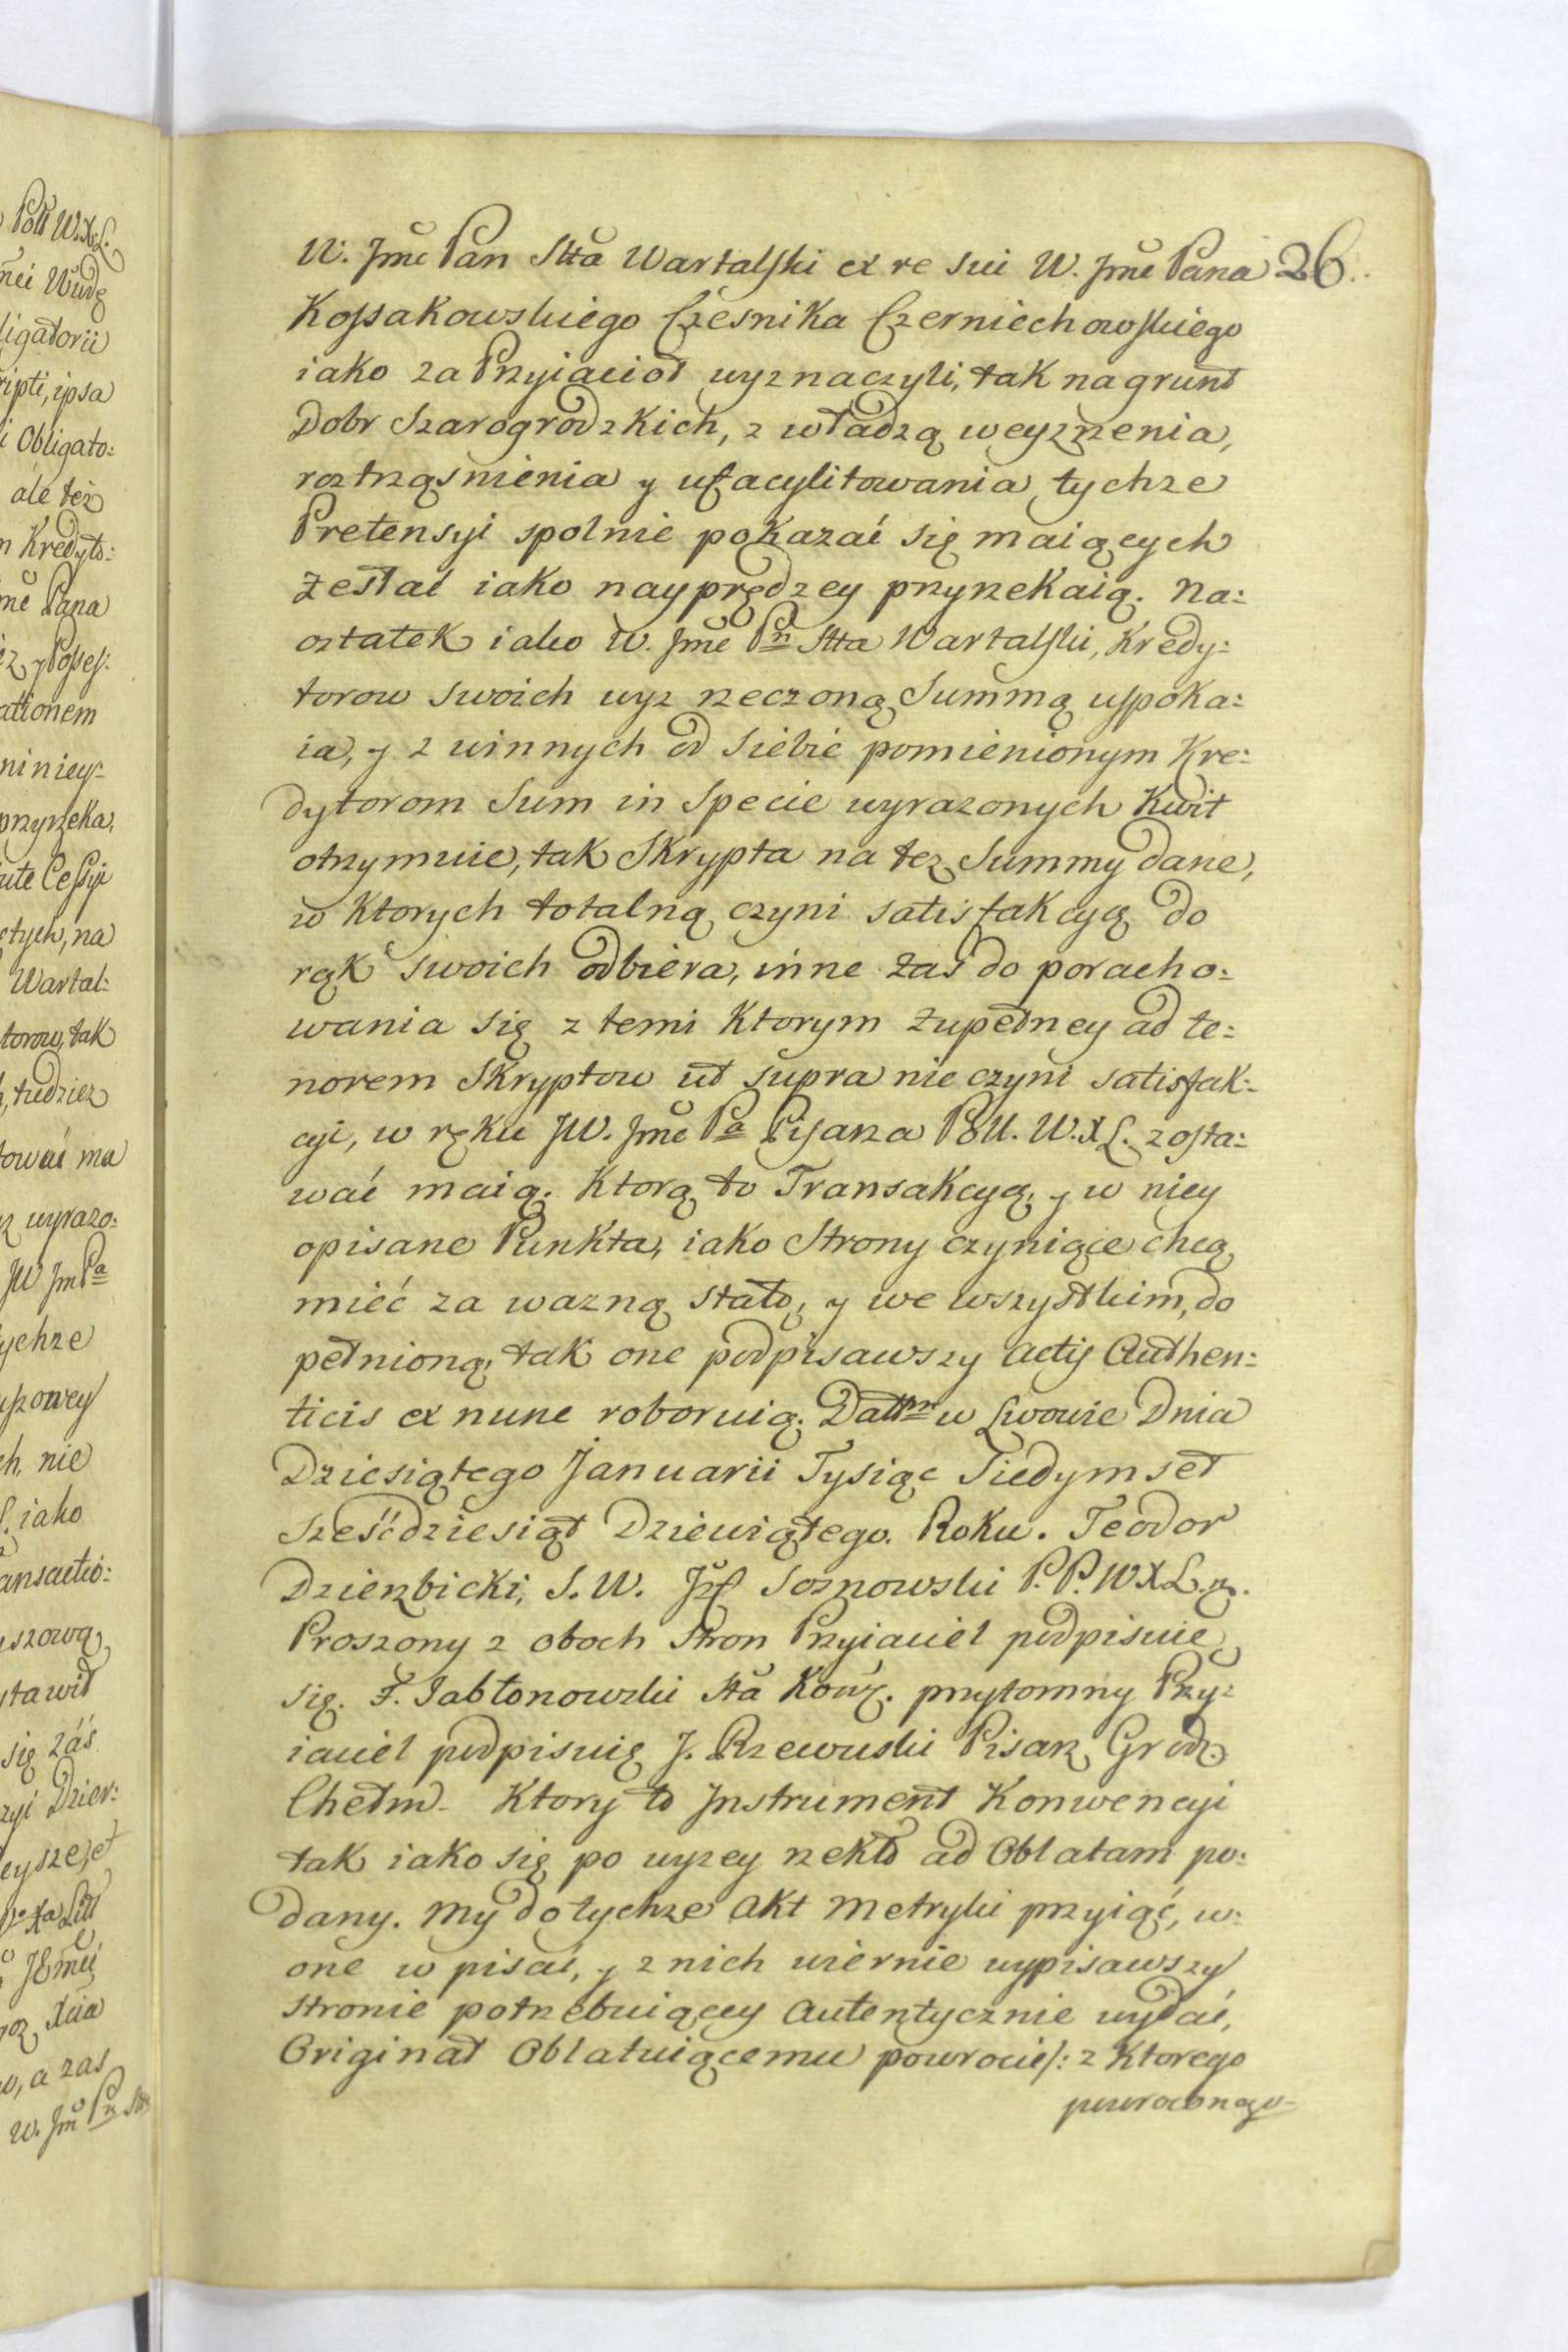 W. Jme Pan Stta Wartalski ex re sui W. Jme Pana 26.
Kossakowskiego Cześnika Czerniechowskiego
iako za Przyiacioł wyznaczyli, tak na grunt
Dobr Szarogrodzkich, z władzą weyzrzenia,
roztrząsnienia y ufacylitowania tychze
Pretensyi spolnie pokazać się maiących
zesłać iako nayprędzey przyrzekaią. Na:
ostatek iako W. Jme Pn Stta Wartalski, Kredy:
torow swoich wyż rzeczoną Summą uspoka:
ia, y z winnych od siebie pomienionym Kre:
dytorom Sum in Specie wyrazonych Kwit
otrzymuie, tak Skrypta na też Summy dane,
w Ktorych totalną czyni satisfakcyą do
rąk swoich odbiera, inne zaś do poracho:
wania się z temi Ktorym zupełney ad te:
norem Skryptow ut supra nie czyni satisfak:
cyi, w ręku JW. Jme Pa Pisarza Poll. W.X.L. zosta:
wać maią. Ktorą to Transakcyą, y w niey
opisane Punkta, iako Strony czyniące chcą
mieć za wazną stałą, y we wszystkim, do
pełnioną, tak one podpisawszy actis Authen:
ticis ex nunc roboruią. Dattm w Lwowie Dnia
Dziesiątego Januarii Tysiąc Siedymset
sześćdziesiąt Dziewiątego. Roku. Teodor
Dzierzbicki, S. W. Jzf Sosnowski P. P. W X L.
Proszony z oboch Stron Przyiaciel podpisuie
się. F. Jabłonowski Sta Kow. przytomny Przy:
iaciel podpisuię J. Rzewuski Pisarz Grodz.
Chełm. Ktory to Jnstrument Konwencyi
tak iako się po wyzey rzekło ad Oblatam po:
dany. My do tychże Akt Metryki przyiąć, w:
one wpisać, y z nich wiernie wypisawszy
stronie potrzebuiącey autentycznie wydać,
Originał Oblatuiącemu powrocić/: z Ktorego
powroconego